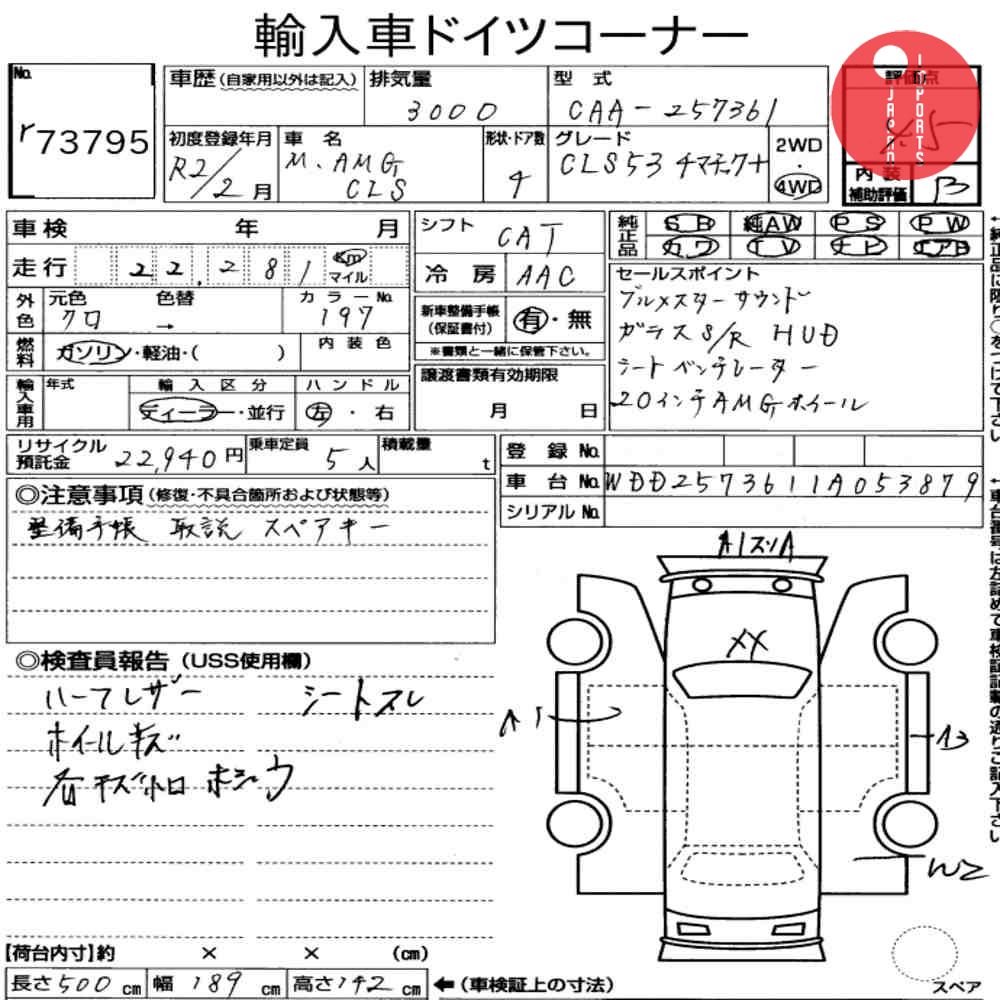 輸入車ドイツコーナー
No.
r73795
車歴(自家用以外は記入)
排気量
3000
型式
CAA-257361
評価点
JAPAN IMPORTS
初度登録年月
R2/2月
車名
M.AMG
CLS
形状・ドア数
4
グレード
CLS53 4マチック+
2WD
・
4WD
内装
補助評価
B
車検 年 月
走行 22,281 Km
マイル
外色
元色
クロ
色替
→
カラーNo.
197
燃料
ガソリン・軽油・( )
内装色
輸入車用
年式
輸入区分
ディーラー・並行
ハンドル
左・右
シフト
CAT
冷房
AAC
新車整備手帳
(保証書付)
有・無
※書類と一緒に保管下さい。
譲渡書類有効期限
月 日
純正品
SR 純AW PS PW
カワ TV ナビ エアB
セールスポイント
ブルメスターサウンド
ガラスS/R HUD
シートベンチレーター
20インチAMGホイール
←純正品に限り○をつけて下さい
リサイクル
預託金
22,940円
乗車定員
5人
積載量
t
登録No.
車台No. WDD2573611A053879
シリアルNo.
◎注意事項(修復・不具合箇所および状態等)
整備手帳 取説 スペアキー
←車台番号は左詰めで車検証記載の通りご記入下さい
◎検査員報告(USS使用欄)
ハーフレザー シートスレ
ホイールキズ
各キズ凹ホシュウ
A1スリA
XX
A1
A3
W2
【荷台内寸】約 × × (cm)
長さ500cm 幅189cm 高さ142cm ←(車検証上の寸法)
スペア